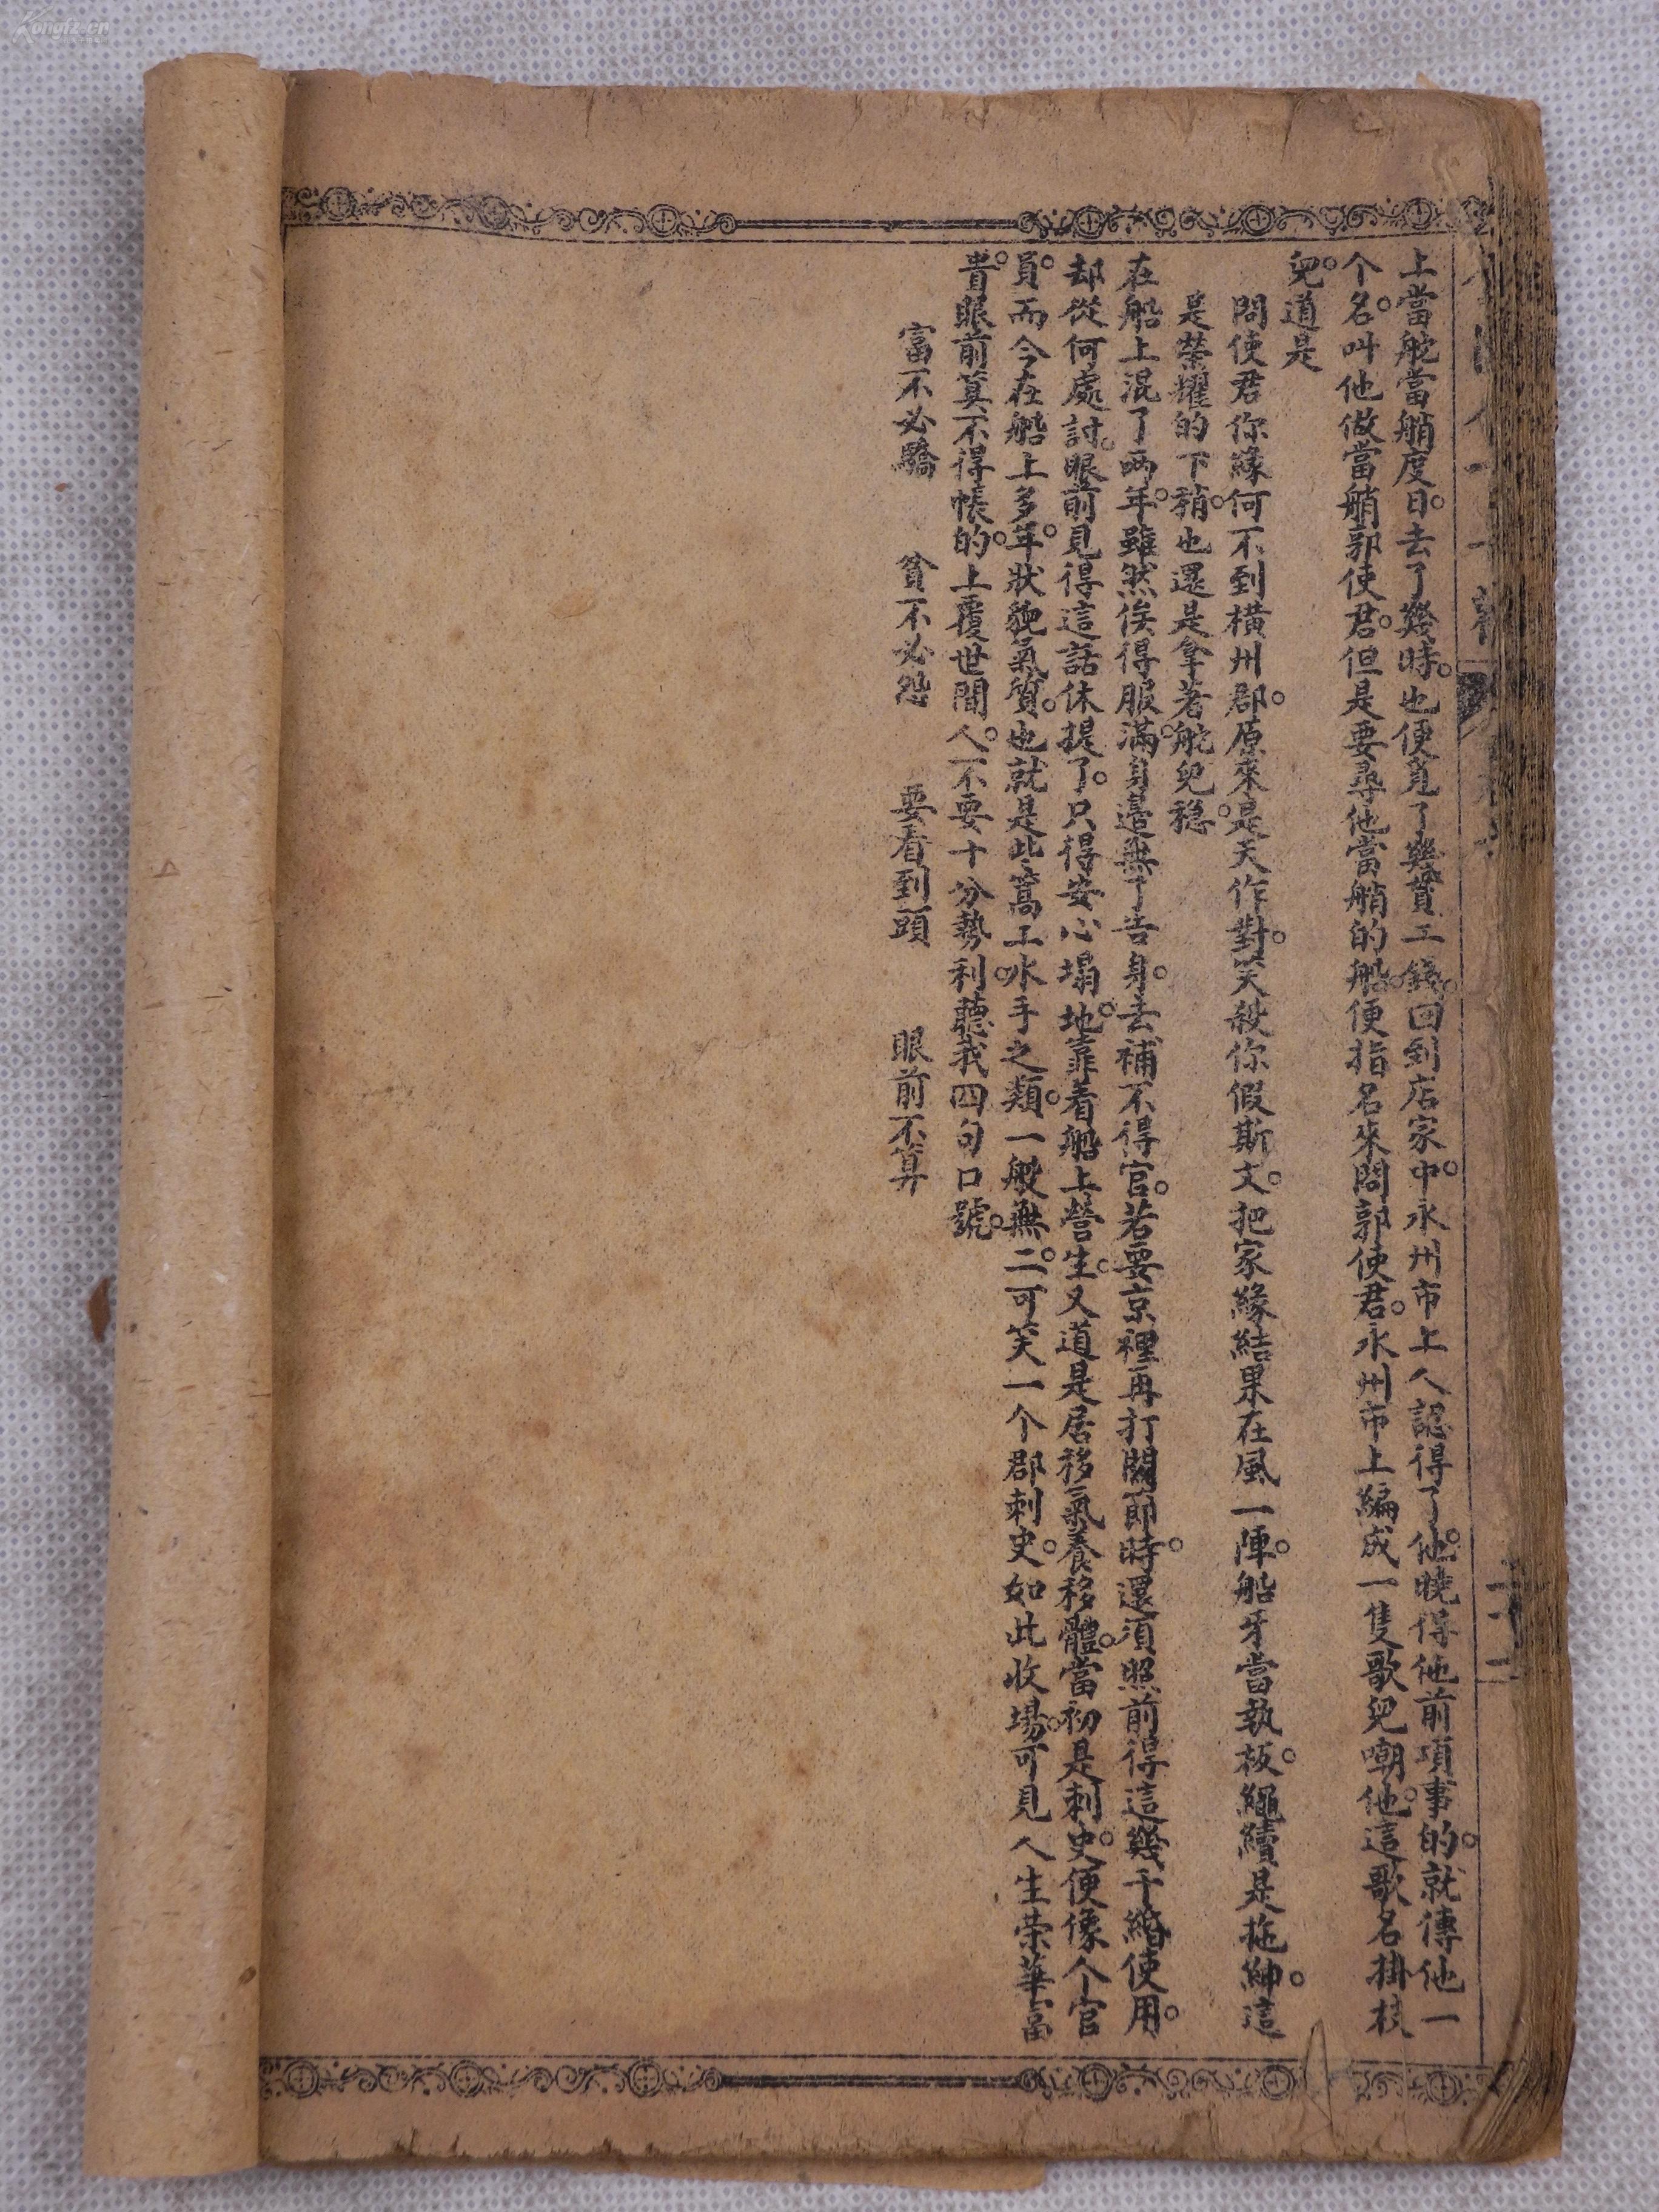 上當舵當艄度日。去了幾時。也便覓了幾貫工錢。回到店家中。永州市上人認得了他。曉得他前項事的。就傳他一
个名。叫他做當艄郭使君。但是要尋他當艄的船。便指名來問郭使君。永州市上編成一隻歌兒嘲他。這歌名掛枝
兒。道是
問使君你緣何不到橫州郡。原來是天作對。笑殺你假斯文。把家緣結果在風一陣。船牙當執板。繩纜是拖紳。這
是榮耀的下稍。也還是拿著舵兒穩。
在船上混了兩年。雖然俟得服滿。身邊無了告身。去補不得官。若要京裡再打關節時。還須照前得這幾千緡使用。
却從何處討。眼前見得這話休提了。只得安心塌地。靠着船上營生。又道是居移氣養移體。當初是刺史。便像个官
員。而今在船上多年。狀貌氣質。也就是些篙工水手之類。一般無二。可笑一个郡刺史。如此收場。可見人生榮華富
貴。眼前算不得帳的。上覆世間人。不要十分勢利。聽我四句口號。
富不必驕 貧不必怨 要看到頭 眼前不算
十二
Kongfz.cn